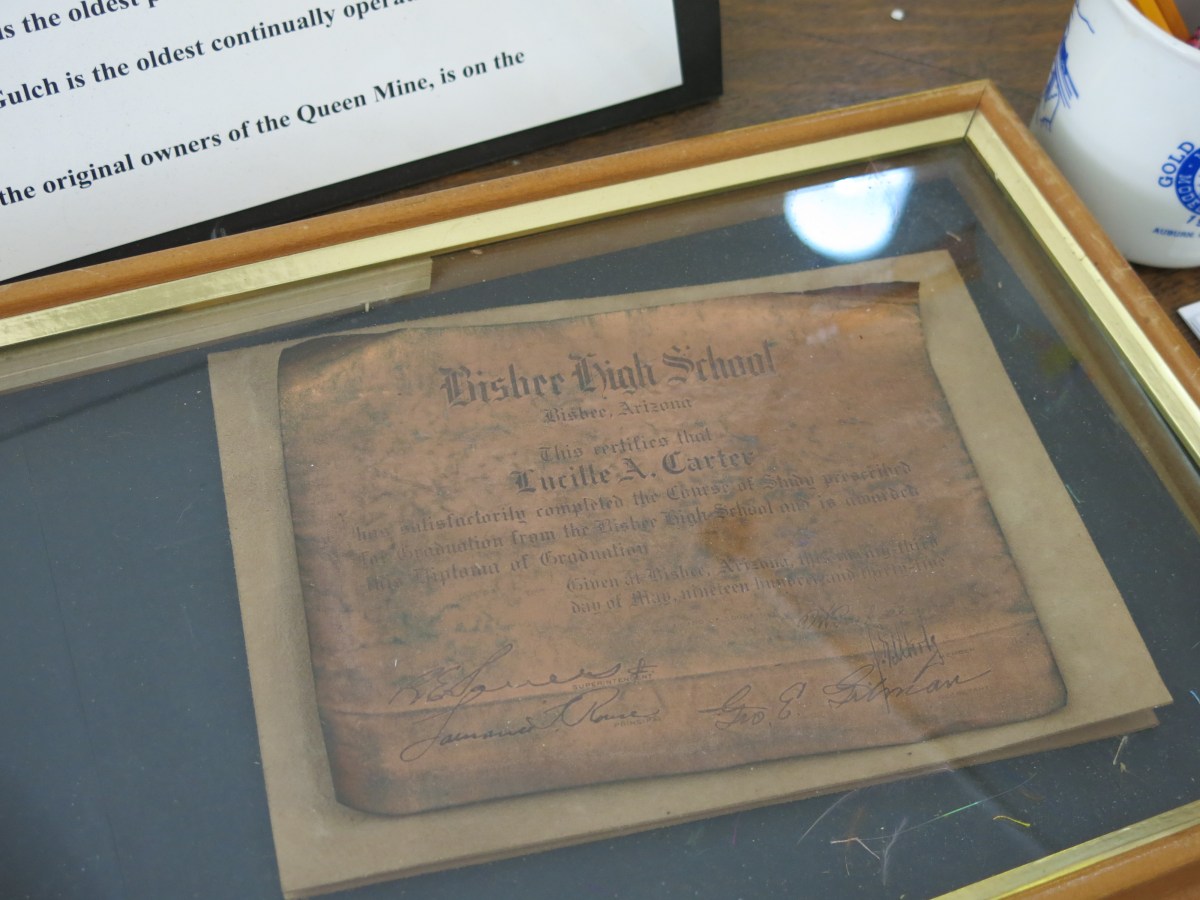 is the oldest
Gulch is the oldest continually
the original owners of the Queen Mine, is on the
GOLD
Bisbee High School
Bisbee, Arizona
This certifies that
Lucille A. Carter
has satisfactorily completed the Course of Study prescribed
for Graduation from the Bisbee High School and is awarded
this Diploma of Graduation
Given at Bisbee, Arizona, this
day of May, nineteen hundred and thirty-five
SUPERINTENDENT
PRINCIPAL
Geo. E.